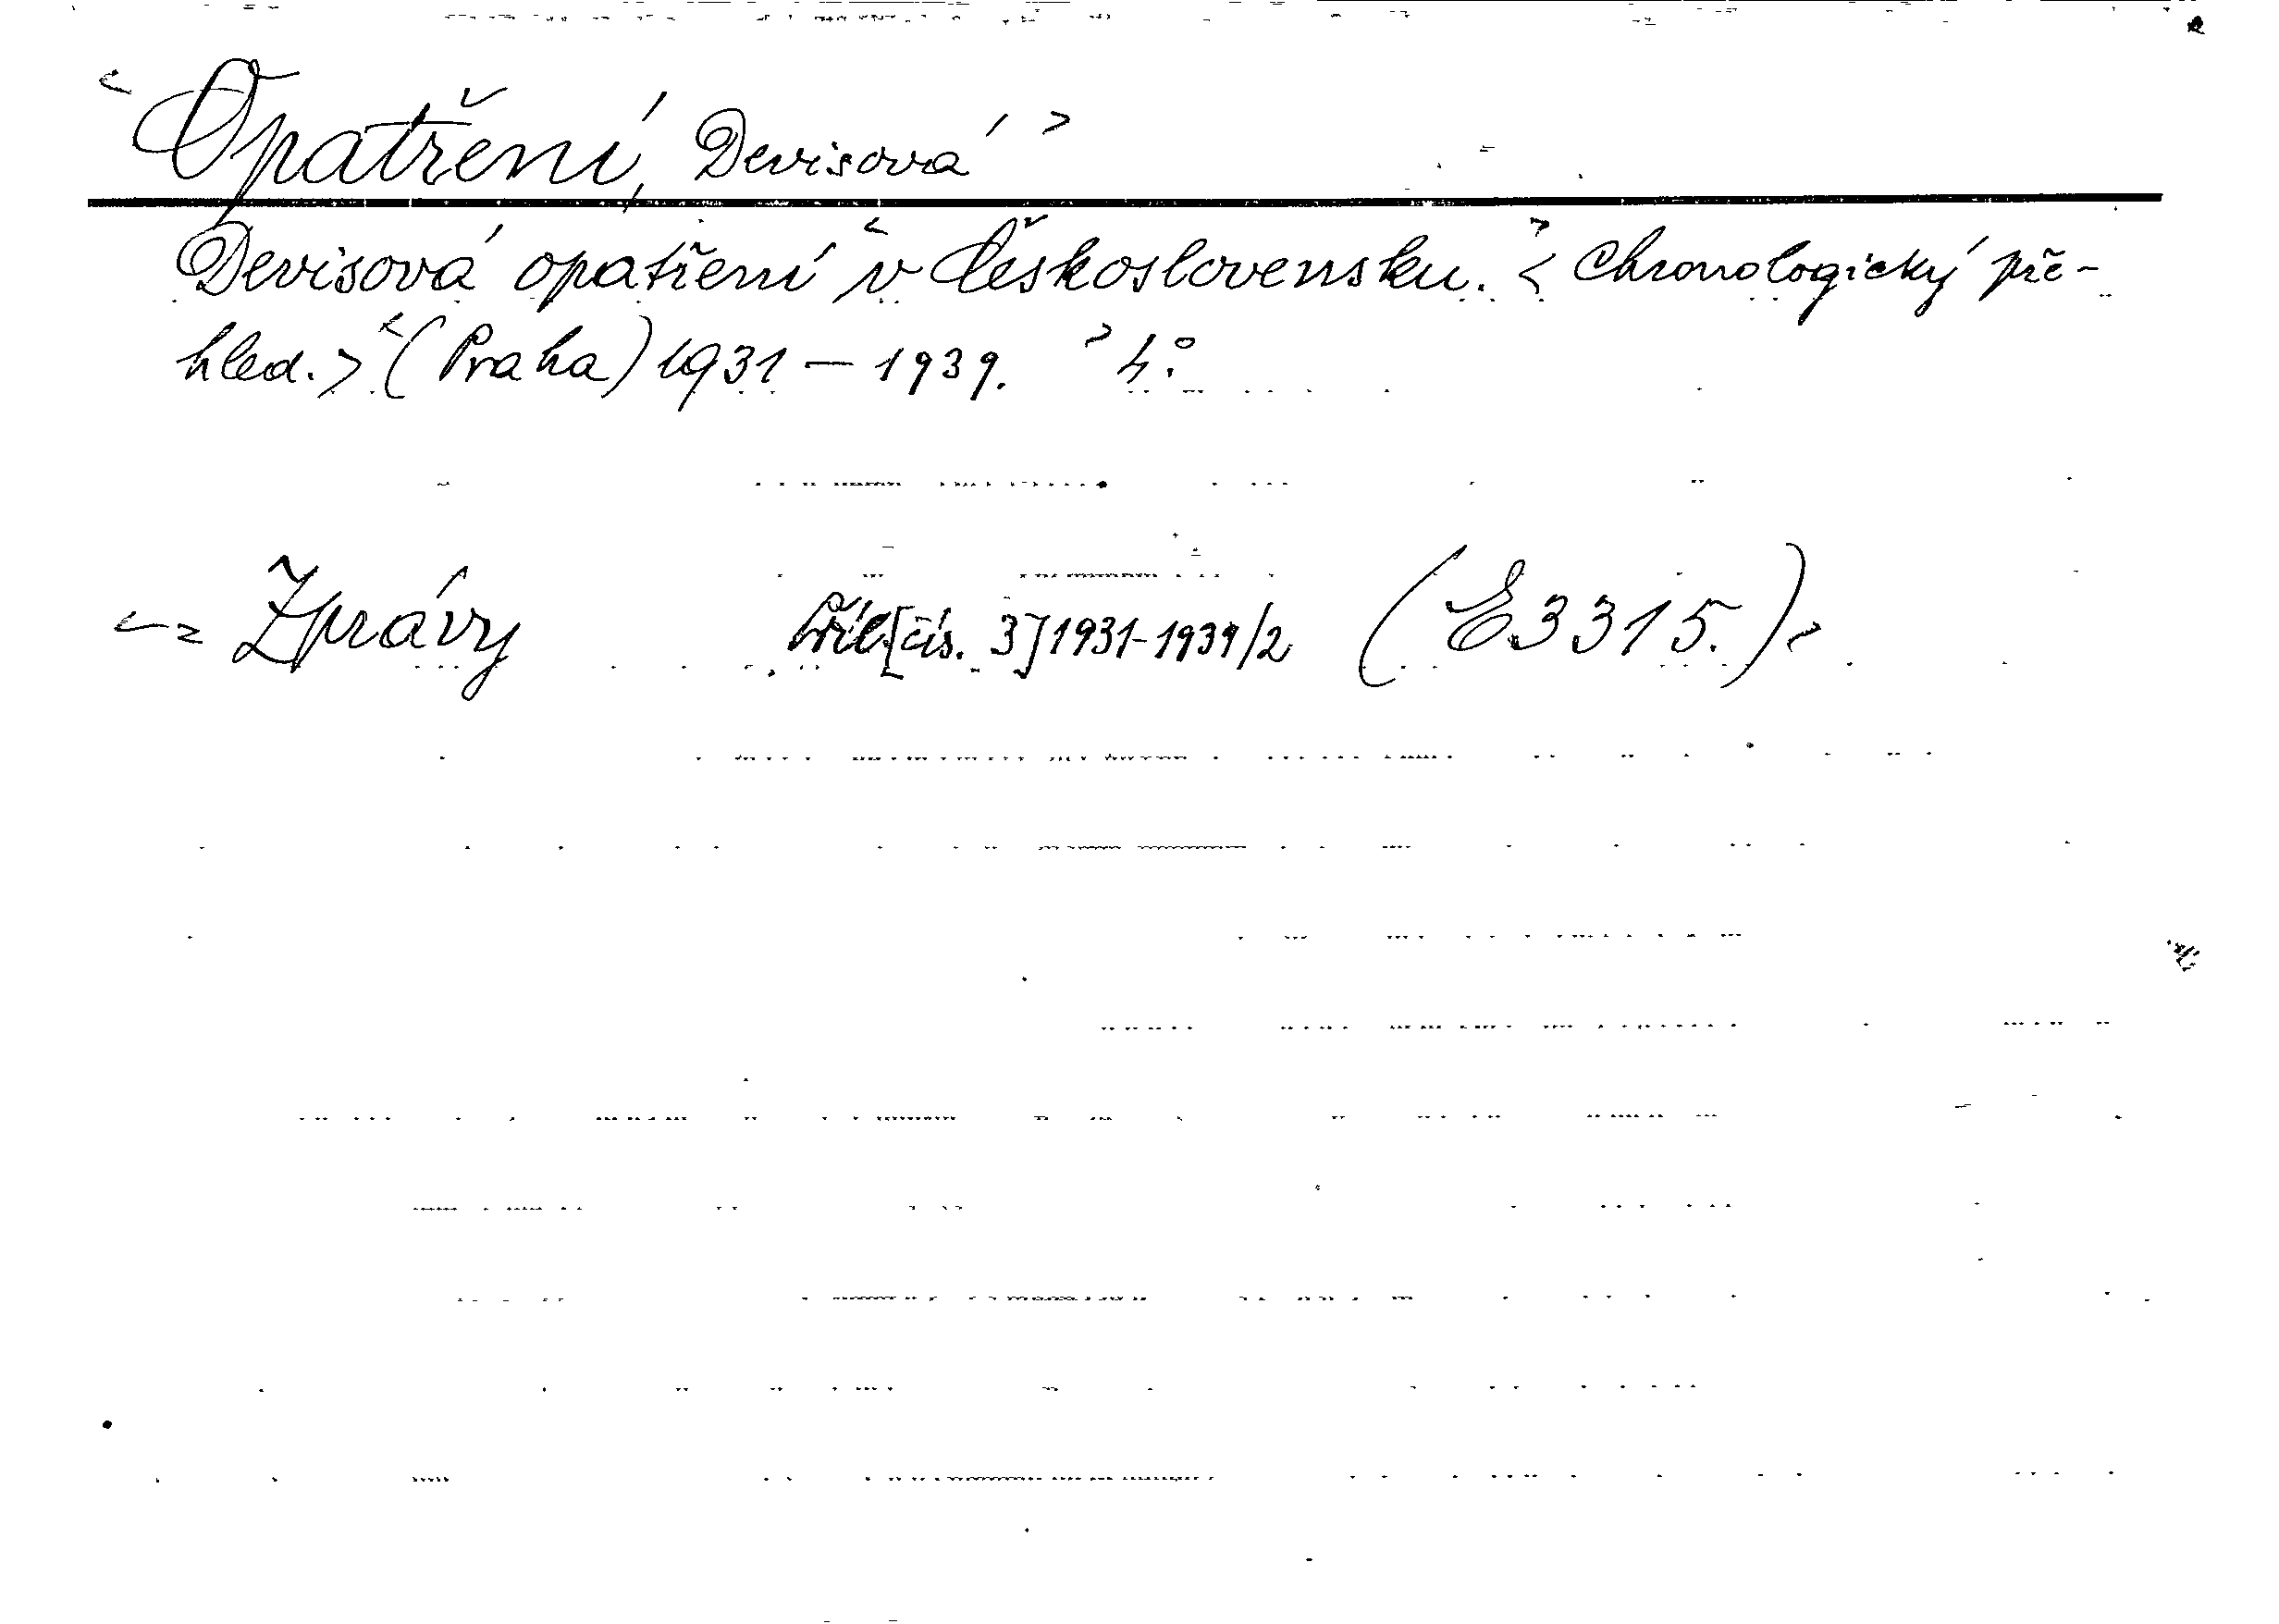 < Opatření, Devisová >
Devisová opatření < v Československu. > < Chronologický pře-
hled. > < (Praha) 1931 — 1939. > 4°.
<= Zprávy Příl. [čís. 3] 1931-1939/2 (E 3315.) >